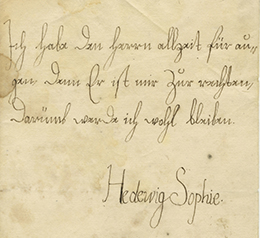 Ich habe den Herrn allzeit für au-
gen, denn Er ist mir zur rechten,
Darümb werde ich wohl bleiben.
Hedewig Sophie.